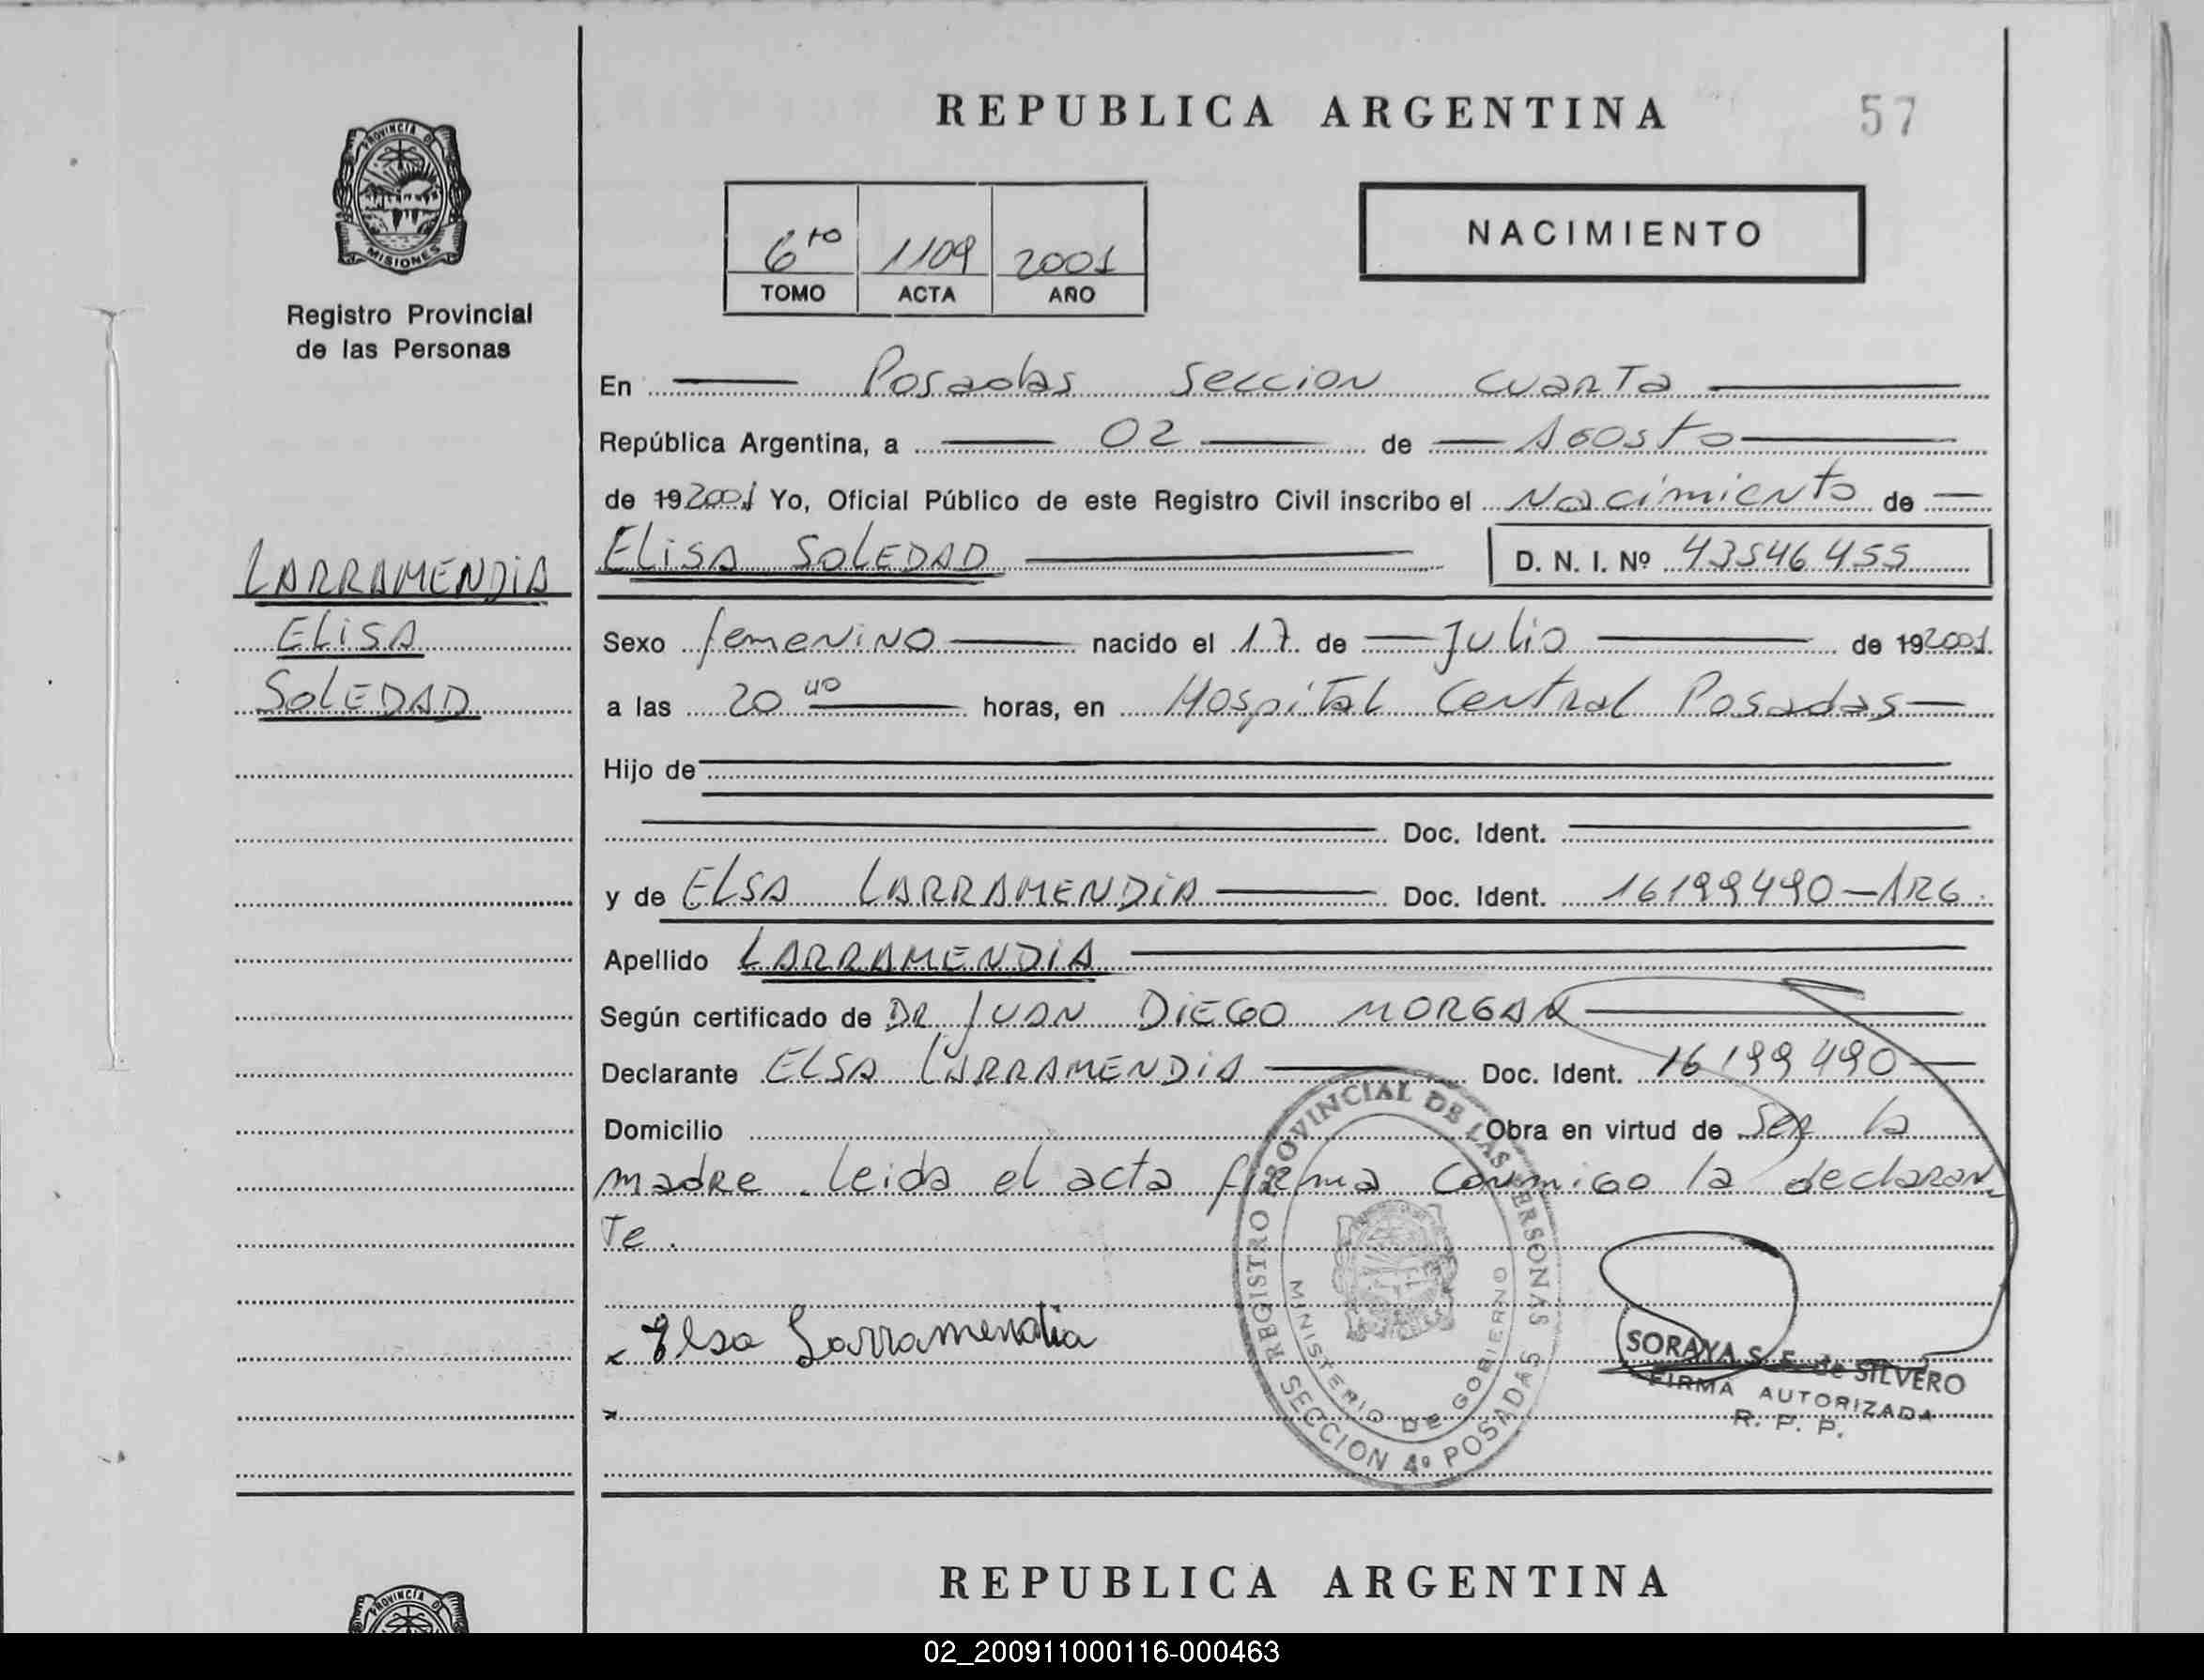 REPUBLICA ARGENTINA
57
PROVINCIA DE MISIONES
Registro Provincial
de las Personas
6to 1109 2001
TOMO ACTA AÑO
NACIMIENTO
En Posadas Seccion Cuarta
República Argentina, a 02 de Agosto
de 192001 Yo, Oficial Público de este Registro Civil inscribo el Nacimiento de
ELISA SOLEDAD D. N. I. Nº 43546455
LARRAMENDIA
ELISA
SOLEDAD
Sexo femenino nacido el 17 de Julio de 192001.
a las 20 40 horas, en Hospital Central Posadas
Hijo de
Doc. Ident.
y de ELSA LARRAMENDIA Doc. Ident. 16199490-ARG.
Apellido LARRAMENDIA
Según certificado de DR JUAN DIEGO MORGAN
Declarante ELSA LARRAMENDIA Doc. Ident. 16199490
Domicilio Obra en virtud de ser la
madre. leida el acta firma conmigo la declaran
te.
x Elsa Larramendia
x
REGISTRO PROVINCIAL DE LAS PERSONAS
MINISTERIO DE GOBIERNO
SECCION 4º POSADAS
SORAYA S. E. de SILVERO
FIRMA AUTORIZADA
R. P. P.
REPUBLICA ARGENTINA
PROVINCIA D
02_200911000116-000463